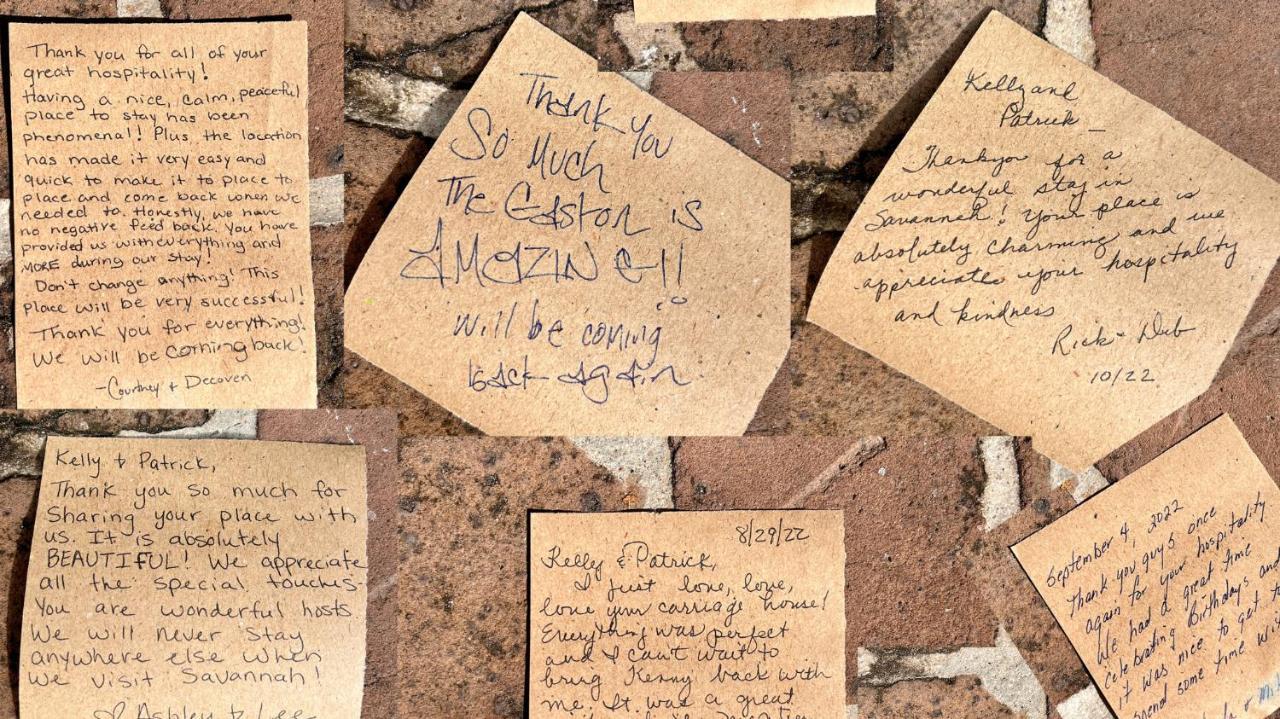 Thank you for all of your
great hospitality!
Having a nice, calm, peaceful
place to stay has been
phenomenal! Plus the location
has made it very easy and
quick to make it to place to
place and come back when we
needed to. Honestly, we have
no negative feed back. You have
provided us with everything and
MORE during our stay!
Don't change anything! This
place will be very successful!
Thank you for everything!
We will be coming back!
-Courtney & Decoven
Thank You
So Much
The Gaston is
AMAZING!!
will be coming
back again.
Kelly and
Patrick
Thankyou for a
wonderful stay in
Savannah! Your place is
absolutely charming and we
appreciate your hospitality
and kindness
Rick & Deb
10/22
Kelly & Patrick,
Thank you so much for
Sharing your place with
us. It is absolutely
BEAUTIFUL! We appreciate
all the special touches.
You are wonderful hosts.
We will never stay
anywhere else when
we visit Savannah!
Ashley & Lee
8/29/22
Kelley & Patrick,
I just love, love,
love your carriage house!
Everything was perfect
and I can't wait to
bring Kenny back with
me. It was a great
September 4, 2022
Thank you guys once
again for your hospitality
We had a great time
celebrating Birthdays and
it was nice to get
spend some time